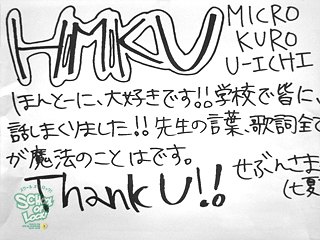 HMKU
MICRO
KURO
U-ICHI
ほんとーに、大好きです!!学校で皆に、
話しまくりました!!先生の言葉、歌詞全て
が魔法のことばです。
Thank U!!
せぶんさま
(七夏
SCHOOL
OF
LOCK!